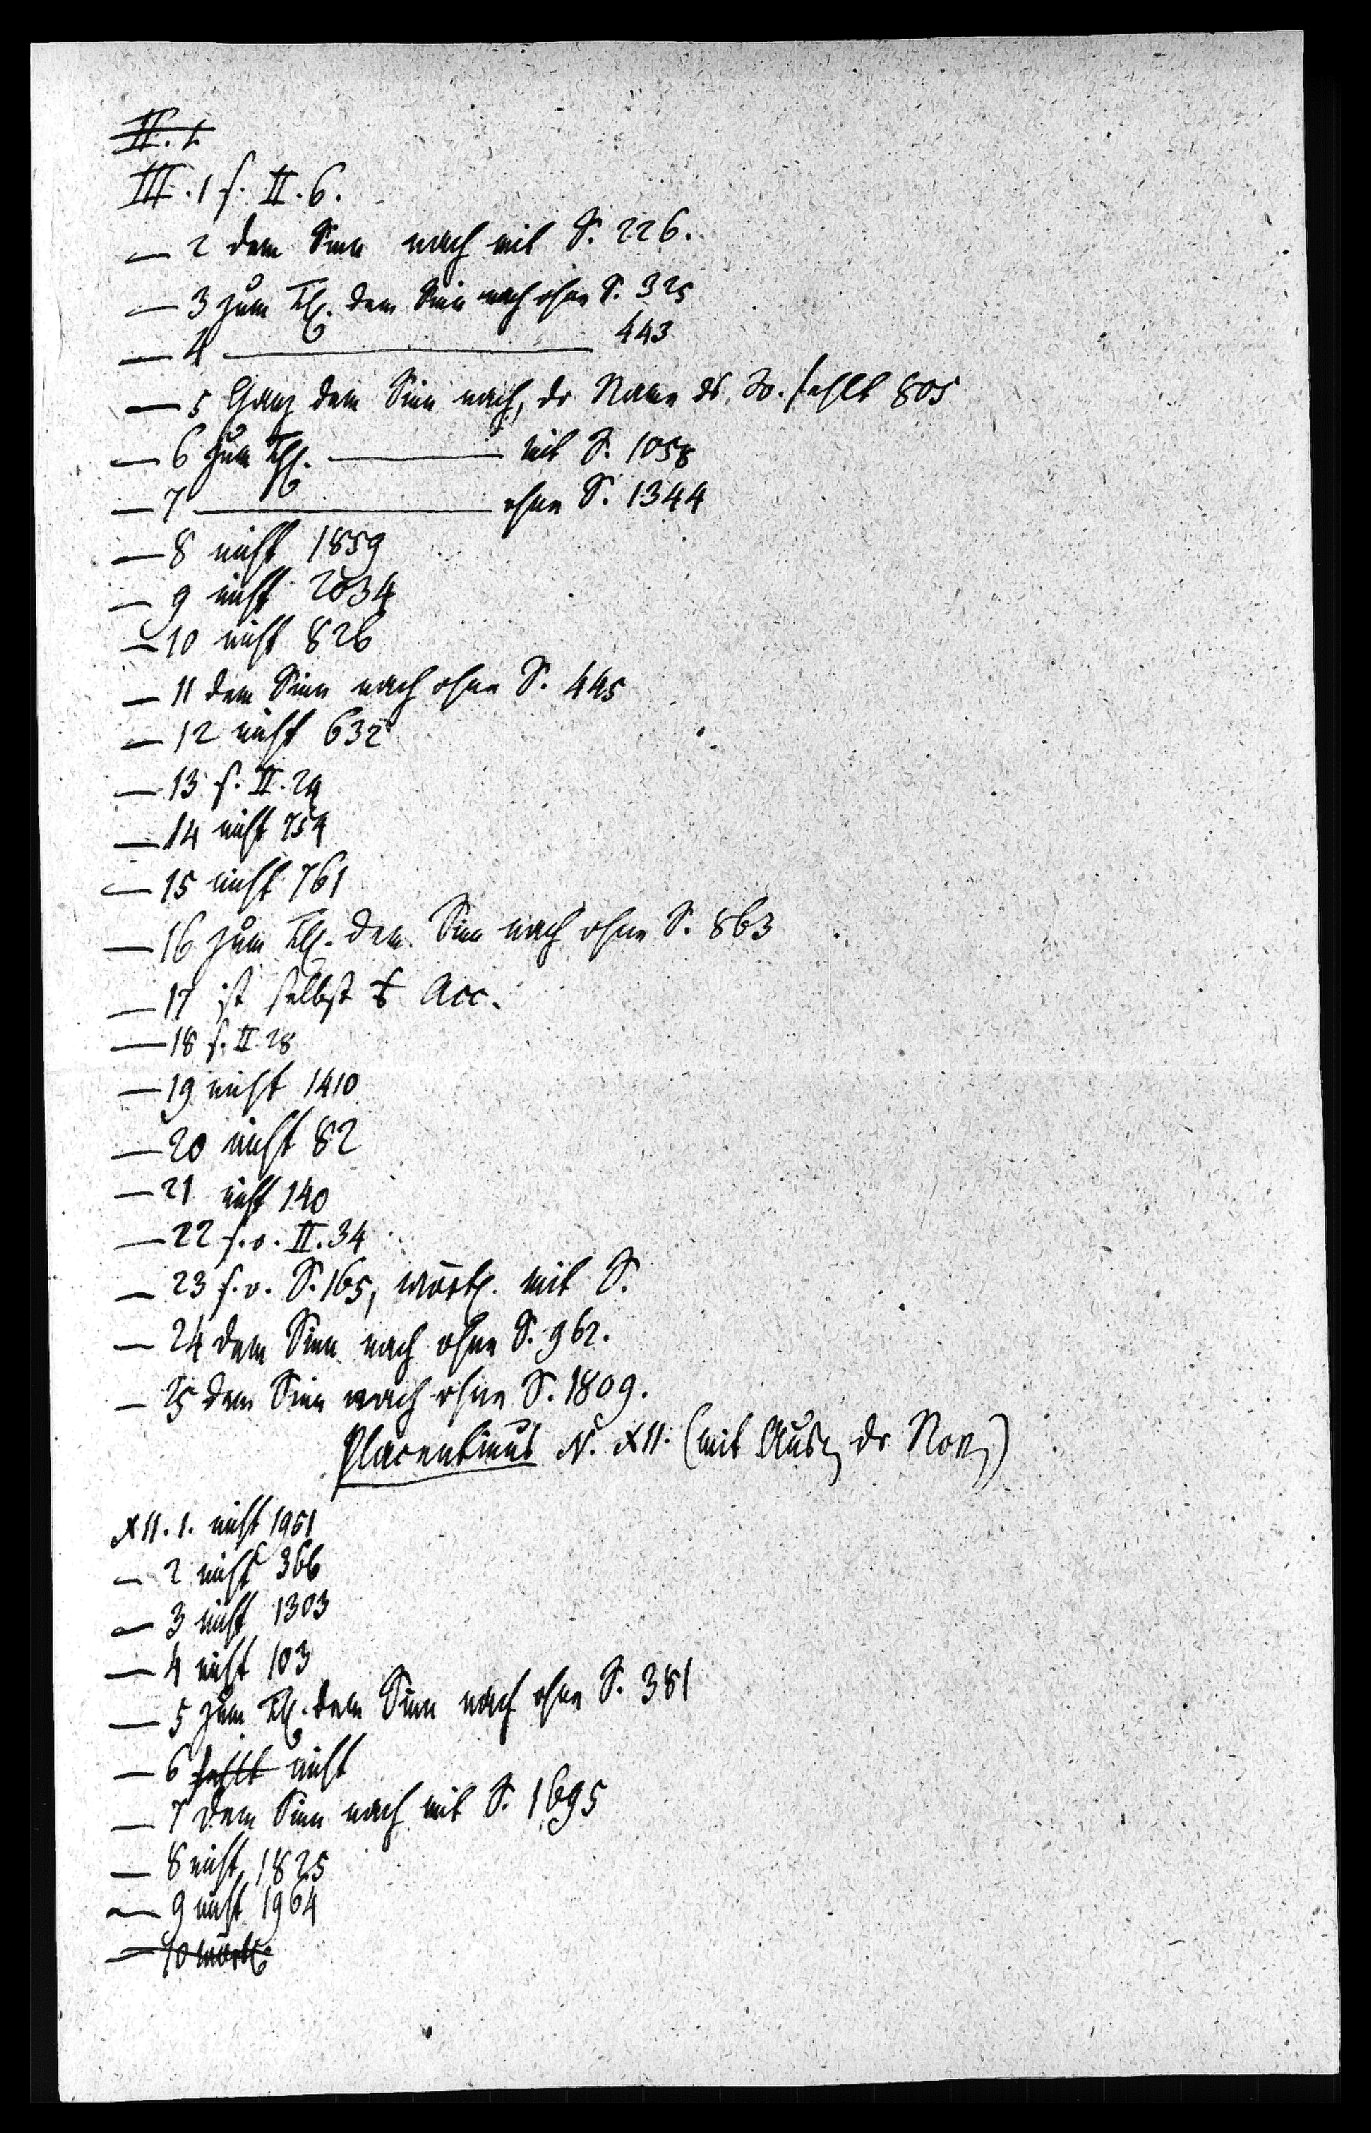 II. 1.
III. 1 s. II. 6.
— 2 dem Sinn nach mit S. 226.
— 3 zum Thl. dem Sinn nach ohne S. 325
— 4 ——— 443
— 5 Ganz dem Sinn nach, dr Name ds. Jo. fehlt 805
— 6 zum Thl. ——— mit S. 1058
— 7 ——— ohne S. 1344
— 8 nicht 1859
— 9 nicht 2034
— 10 nicht 826
— 11 dem Sinn nach ohne S. 445
— 12 nicht 632
— 13 s. II. 24
— 14 nicht 754
— 15 nicht 761
— 16 zum Thl. dem Sinn nach ohne S. 863
— 17 ist selbst Acc.
— 18 s. II. 28
— 19 nicht 1410
— 20 nicht 82
— 21 nicht 140
— 22 s. o. II. 34
— 23 s. o. S. 165, wörtl. mit S.
— 24 dem Sinn nach ohne S. 962.
— 25 dem Sinn nach ohne S. 1809.
Placentinus N. XII. (mit Ausz dr Nov.)
XII. 1. nicht 1961
— 2 nicht 366
— 3 nicht 1303
— 4 nicht 103
— 5 zum Thl. dem Sinn nach ohne S. 381
— 6 fehlt nicht
— 7 dem Sinn nach mit S. 1695
— 8 nicht 1825
— 9 nicht 1964
— 10 wörtl.